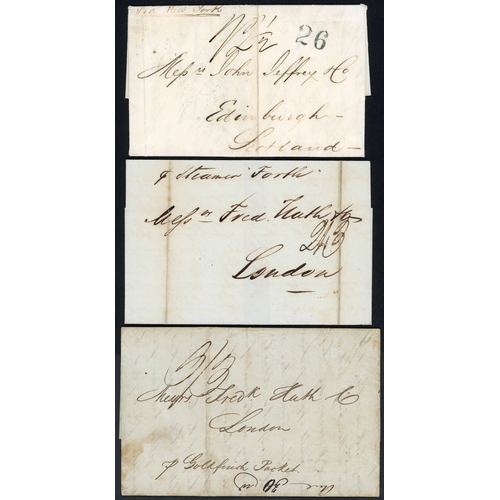 Via New York
26
Messrs John Jeffrey & Co
Edinburgh
Scotland
p Steamer Forth
Messrs Fred. Huth & Co
2/3
London
2/3
Messrs Fredk Huth & Co
London
p Goldfinch Packet